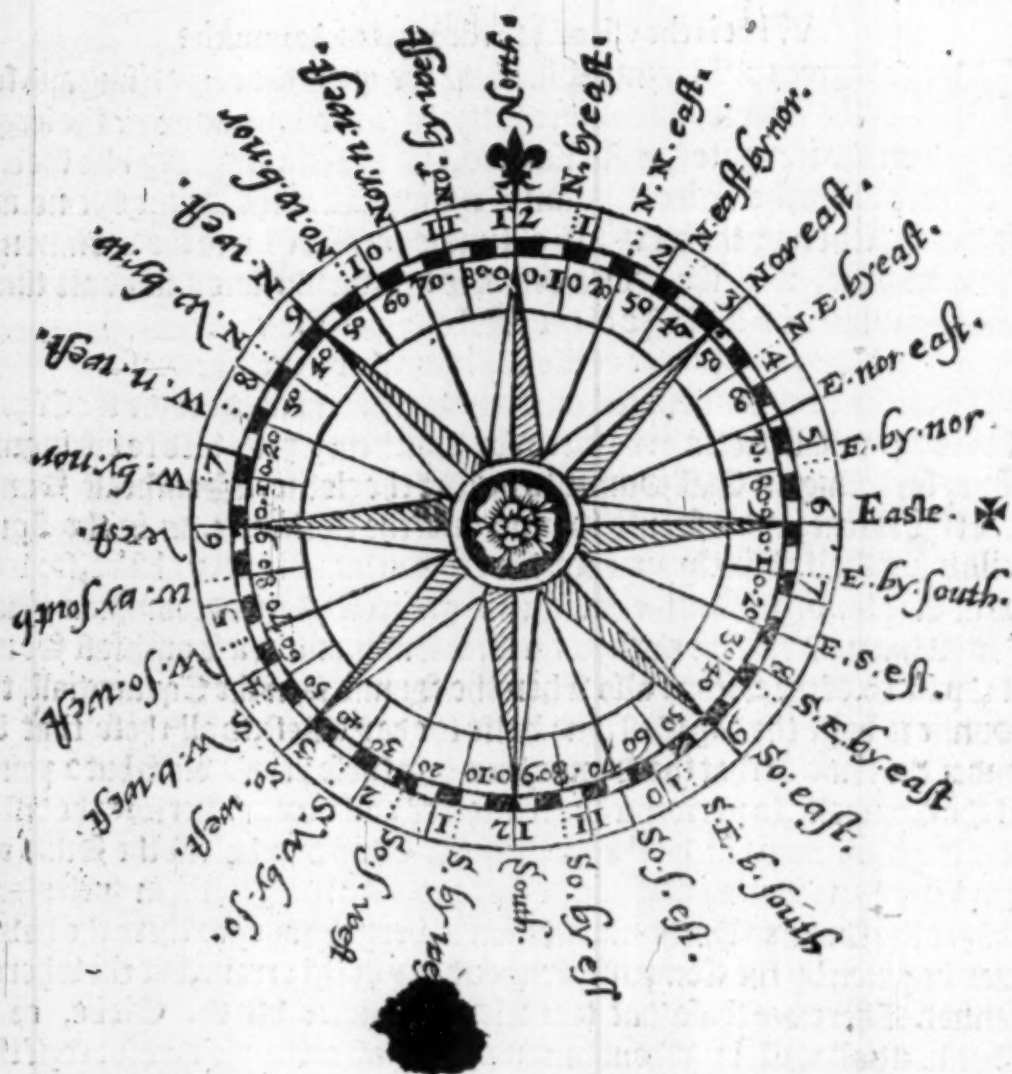 North.
N. by eaſt.
N. N. eaſt.
N. eaſt by nor.
Nor eaſt.
N. E. by eaſt.
E. nor eaſt.
E. by nor
Eaſte.
E. by ſouth.
E. s. eſt.
S. E. by eaſt
So: eaſt.
S. E. b. ſouth
So ſ. eſt.
So. by eſt
South.
S. by weſ
So ſ. weſt
S. w. by ſo.
So. weſt.
S. w. b. weſt.
W. ſo. weſt
w. by ſouth
west.
w. by nor
W. n. weſt.
N. w. by. w.
N. weſt.
No. w. b. nor
Nor. n. weſt.
No. by weſt
12 1 2 3 4 5 6 7 8 9 10 11 12 1 2 3 4 5 6 7 8 9 10 11
10 20 30 40 50 60 70 80 90 10 20 30 40 50 60 70 80 90 10 20 30 40 50 60 70 80 90 10 20 30 40 50 60 70 80 90